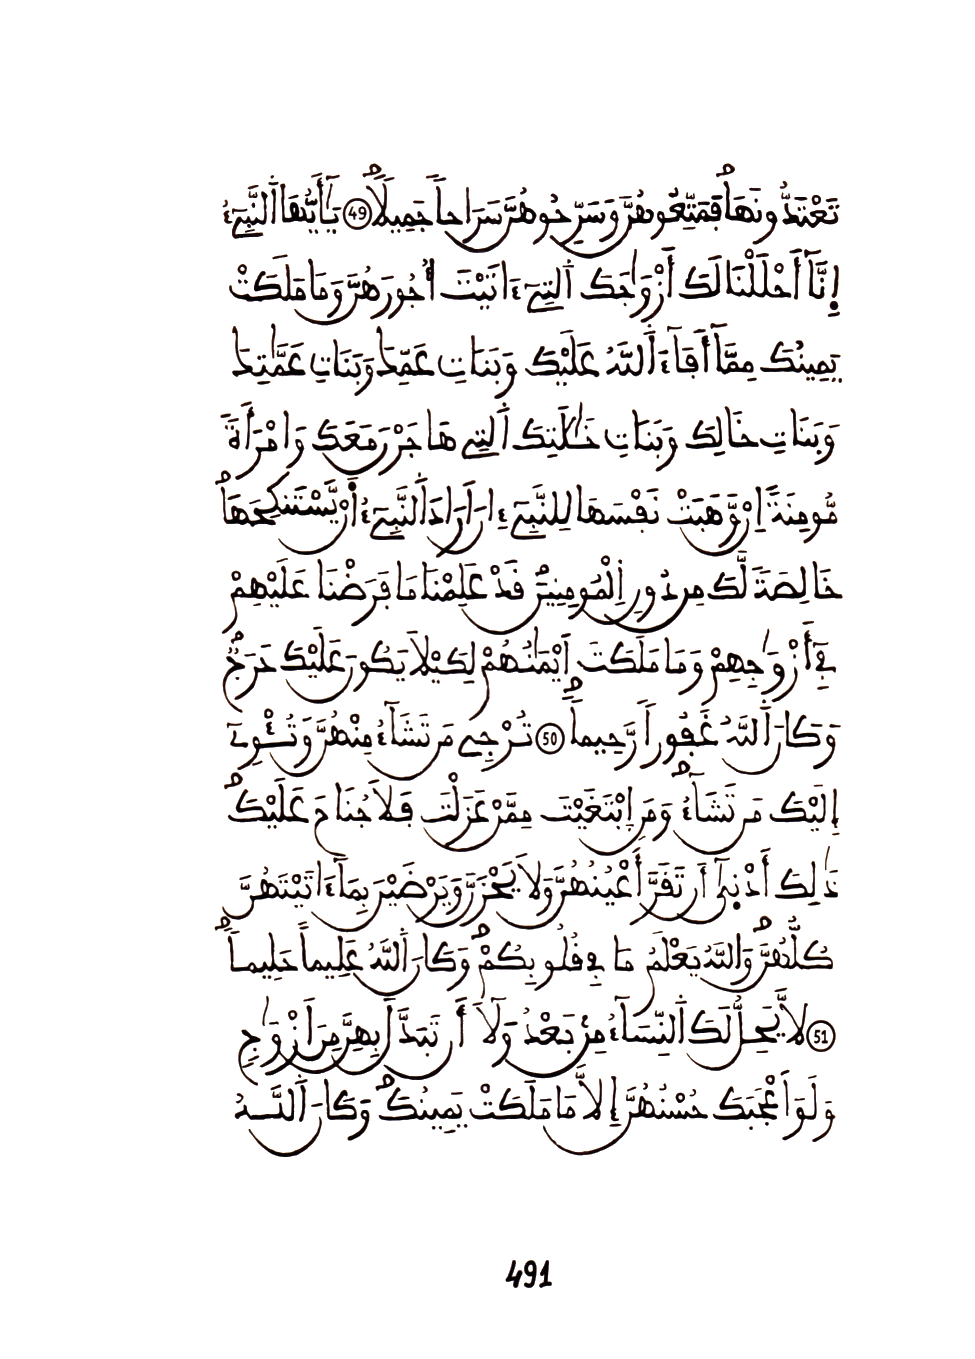 تَعْتَدُّونَهَاۖ فَمَتِّعُوهُنَّ وَسَرِّحُوهُنَّ سَرَاحاٗ جَمِيلاٗۖ 49 يَٰٓأَيُّهَا اَ۬لنَّبِےٓءُ
اِ۪نَّآ أَحْلَلْنَا لَكَ أَزْوَٰجَكَ اَ۬لتِےٓ ءَاتَيْتَ أُجُورَهُنَّ وَمَا مَلَكَتْ
يَمِينُكَ مِمَّآ أَفَآءَ اَ۬للَّهُ عَلَيْكَ وَبَنَاتِ عَمِّكَ وَبَنَاتِ عَمَّٰتِكَ
وَبَنَاتِ خَالِكَ وَبَنَاتِ خَٰلَٰتِكَ اَ۬لتِے هَاجَرْنَ مَعَكَ وَامْرَأَةٗ
مُّومِنَةً اِنْ وَّهَبَتْ نَفْسَهَا لِلنَّبِےٓءِ اِ۪نَ اَرَادَ اَ۬لنَّبِےٓءُ اَ۪نْ يَّسْتَنكِحَهَاۖ
خَالِصَةٗ لَّكَ مِن دُونِ اِ۬لْمُومِنِينَۖ قَدْ عَلِمْنَا مَا فَرَضْنَا عَلَيْهِمْ
فِےٓ أَزْوَٰجِهِمْ وَمَا مَلَكَتَ اَيْمَٰنُهُمْ لِكَيْلَا يَكُونَ عَلَيْكَ حَرَجٞۖ
وَكَانَ اَ۬للَّهُ غَفُوراٗ رَّحِيماٗۖ 50 تُرْجِے مَن تَشَآءُ مِنْهُنَّ وَتُـْٔوِےٓ
إِلَيْكَ مَن تَشَآءُۖ وَمَنِ اِ۪بْتَغَيْتَ مِمَّنْ عَزَلْتَ فَلَا جُنَاحَ عَلَيْكَۖ
ذَٰلِكَ أَدْنَ۪يٰٓ أَن تَقَرَّ أَعْيُنُهُنَّ وَلَا يَحْزَنَّ وَيَرْضَيْنَ بِمَآ ءَاتَيْتَهُنَّ
كُلُّهُنَّۖ وَاللَّهُ يَعْلَمُ مَا فِے قُلُوبِكُمْۖ وَكَانَ اَ۬للَّهُ عَلِيماً حَلِيماٗۖ
51 لَّا يَحِلُّ لَكَ اَ۬لنِّسَآءُ مِنۢ بَعْدُ وَلَآ أَن تَبَدَّلَ بِهِنَّ مِنَ اَزْوَٰجٖ
وَلَوَ اَعْجَبَكَ حُسْنُهُنَّ إِلَّا مَا مَلَكَتْ يَمِينُكَۖ وَكَانَ اَ۬للَّهُ
491